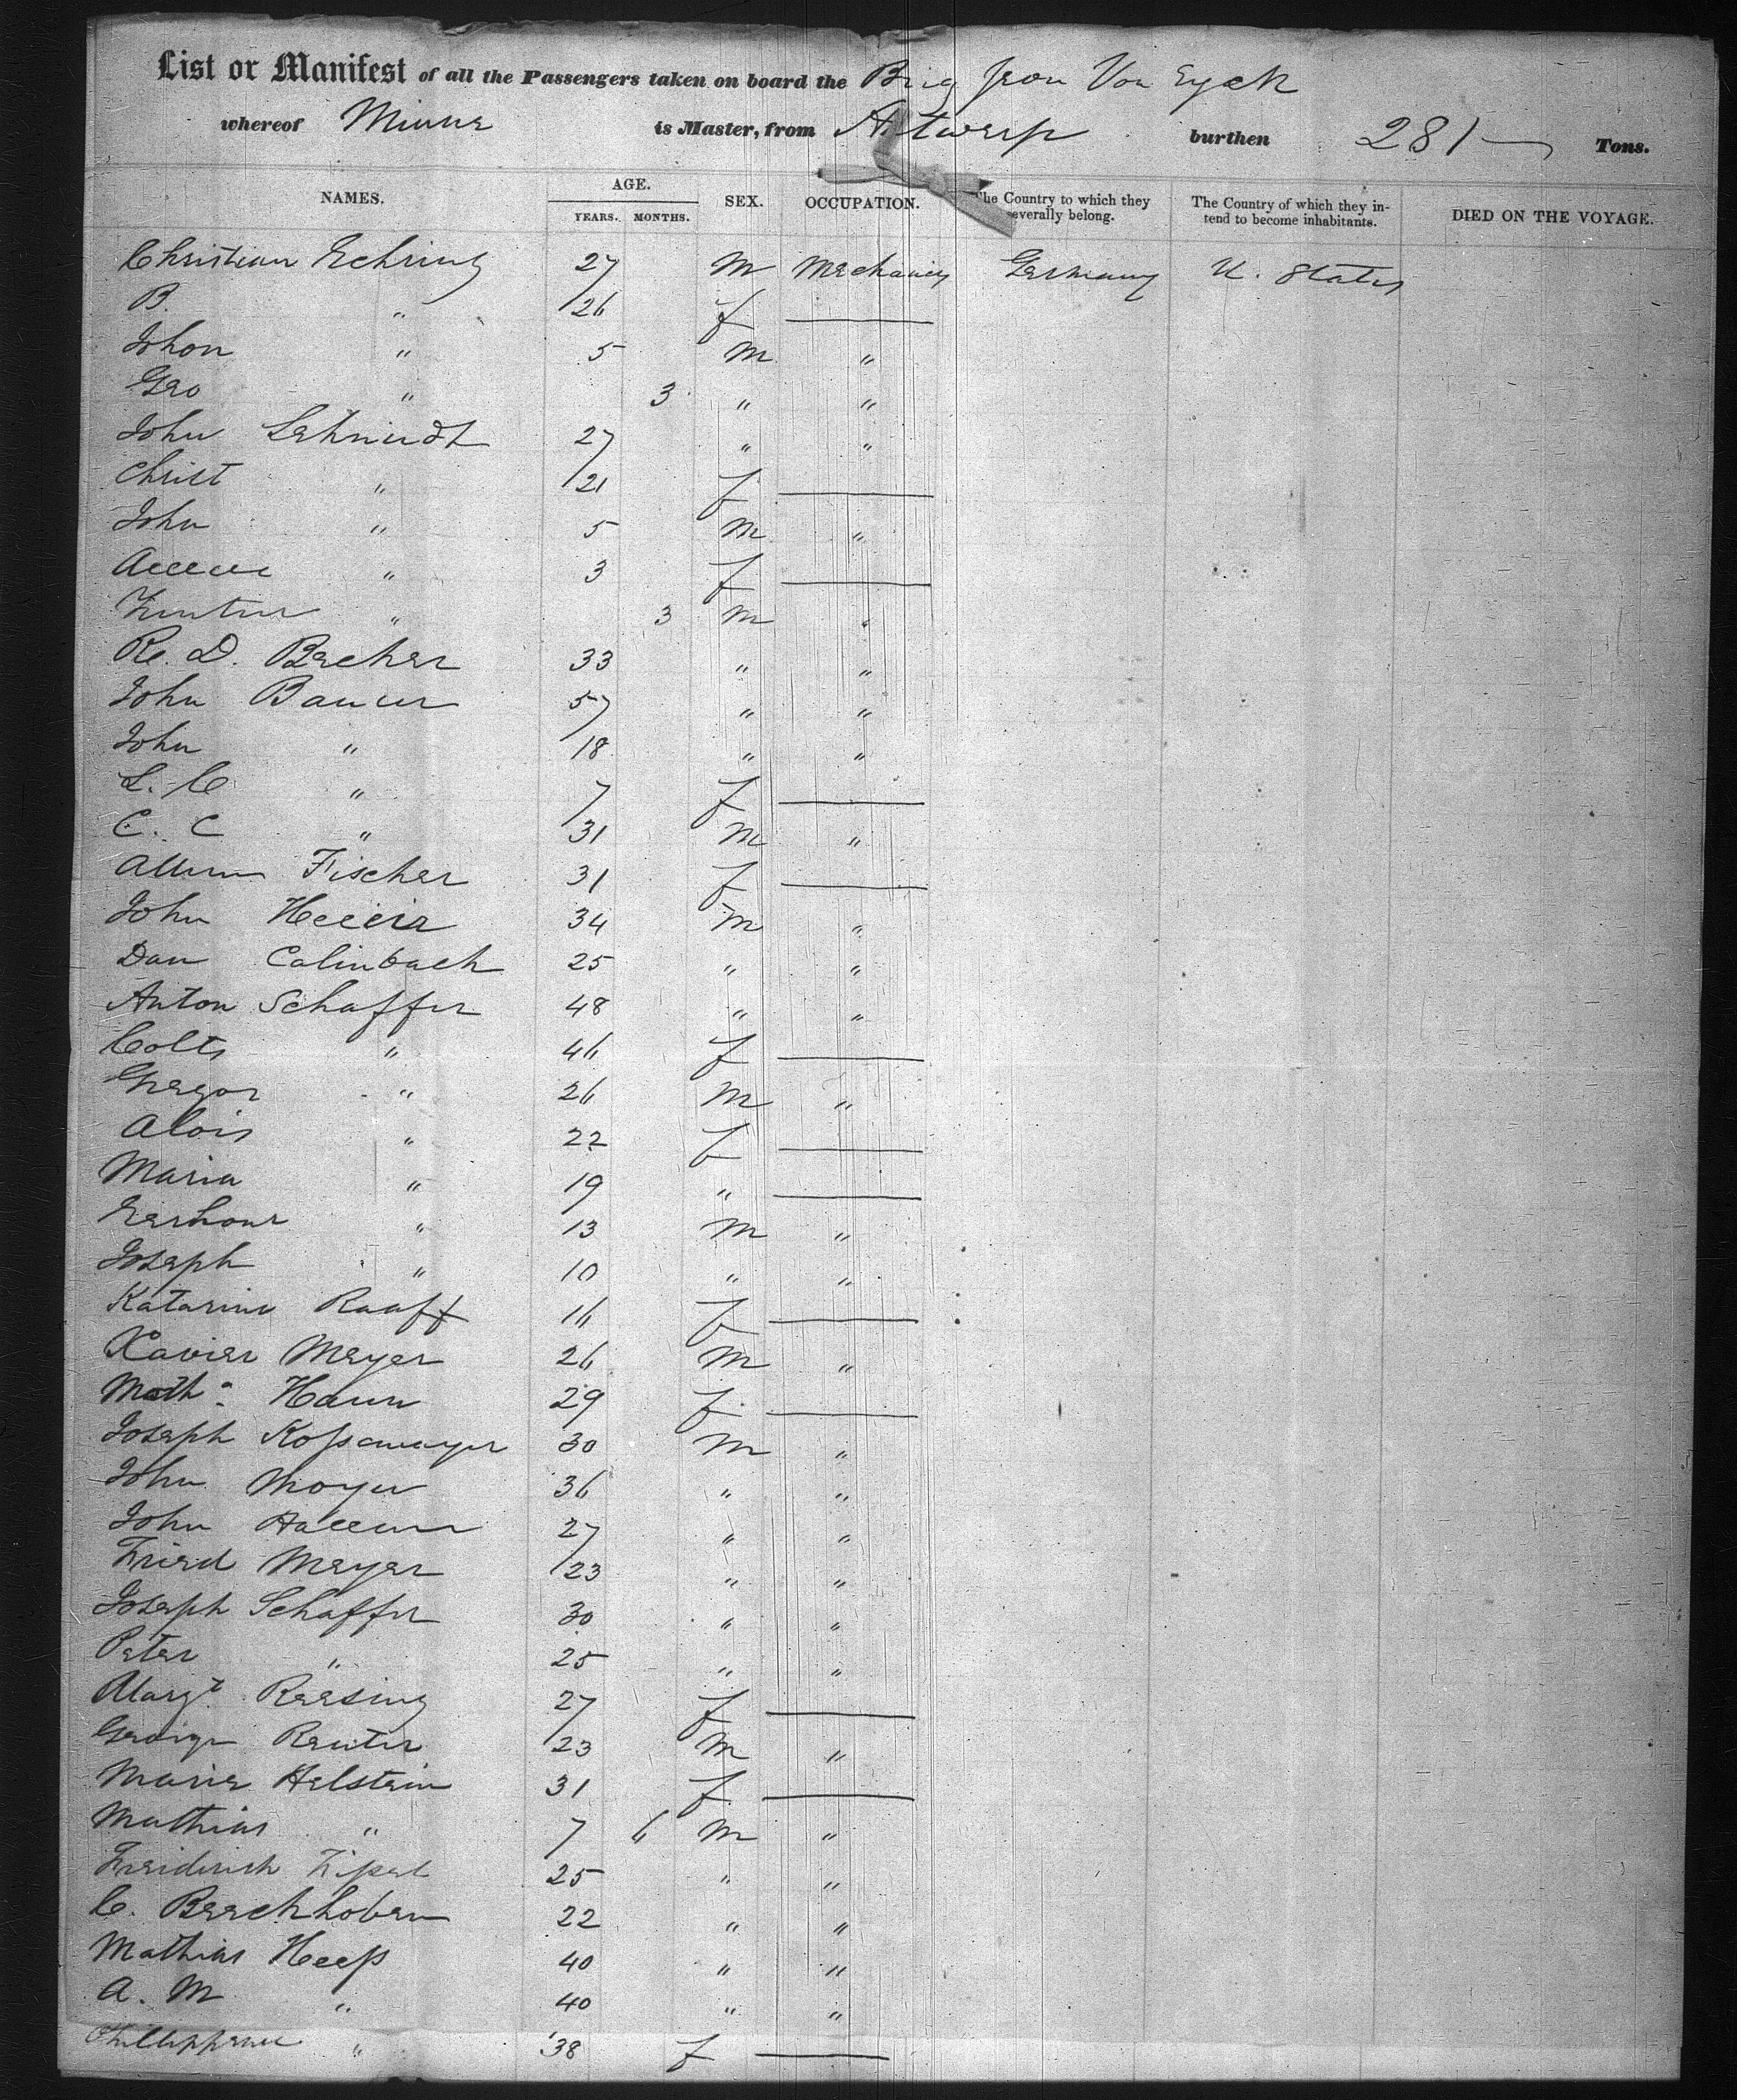 List or Manifest of all the Passengers taken on board the Brig Jean Van Eyck
whereof Minne is Master, from Antwerp burthen 281 Tons.
NAMES. AGE. YEARS. MONTHS. SEX. OCCUPATION. The Country to which they severally belong. The Country of which they intend to become inhabitants. DIED ON THE VOYAGE.
Christian Echring 27 M Mechanics Germany U. States
B. " 26 f —
Jhon " 5 M "
Geo " 3 " "
John Schmidt 27 " "
Christ " 21 f —
John " 5 M "
" 3 f —
" 3 M "
R. D. Becher 33 " "
John Bauer 57 " "
John " 18 " "
L. C " 7 f —
C. C " 31 M "
Fischer 31 f —
John 34 M "
Dan Calinbach 25 " "
Anton Schaffer 48 " "
" 46 f —
Gregor " 26 M "
Alois " 22 f —
Maria " 19 " —
" 13 M "
Joseph " 10 " "
Katarina Raaff 16 f —
Xavier Meyer 26 M "
Math. Haun 29 f —
Joseph Kossmayer 30 M "
John Moyer 36 " "
John 27 " "
Fried Meyer 23 " "
Joseph Schaffer 30 " "
Peter " 25 " "
Margt. Reesing 27 f —
George Reuter 23 M "
Marie Helstein 31 f —
Mathias " 7 6 M "
Freiderich 25 " "
C. Beeckhoben 22 " "
Mathias Heess 40 " "
A. M " 40 " "
" 38 f —